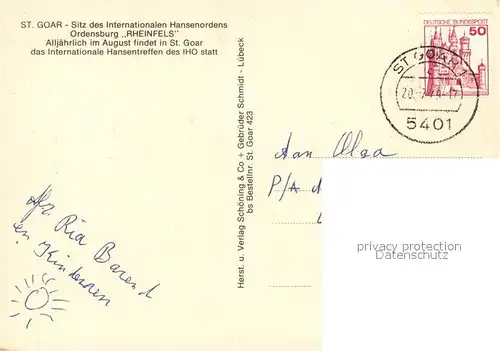 ST. GOAR - Sitz des Internationalen Hansenordens
Ordensburg ,,RHEINFELS"
Alljährlich im August findet in St. Goar
das Internationale Hansentreffen des IHO statt
DEUTSCHE BUNDESPOST
50
ST. GOAR 1
5401
Herst. u. Verlag Schöning & Co + Gebrüder Schmidt - Lübeck
bs Bestellnr. St. Goar 423
Aan Olga
P/A
afz. Ria Barend
en Kinderen
privacy protection
Datenschutz